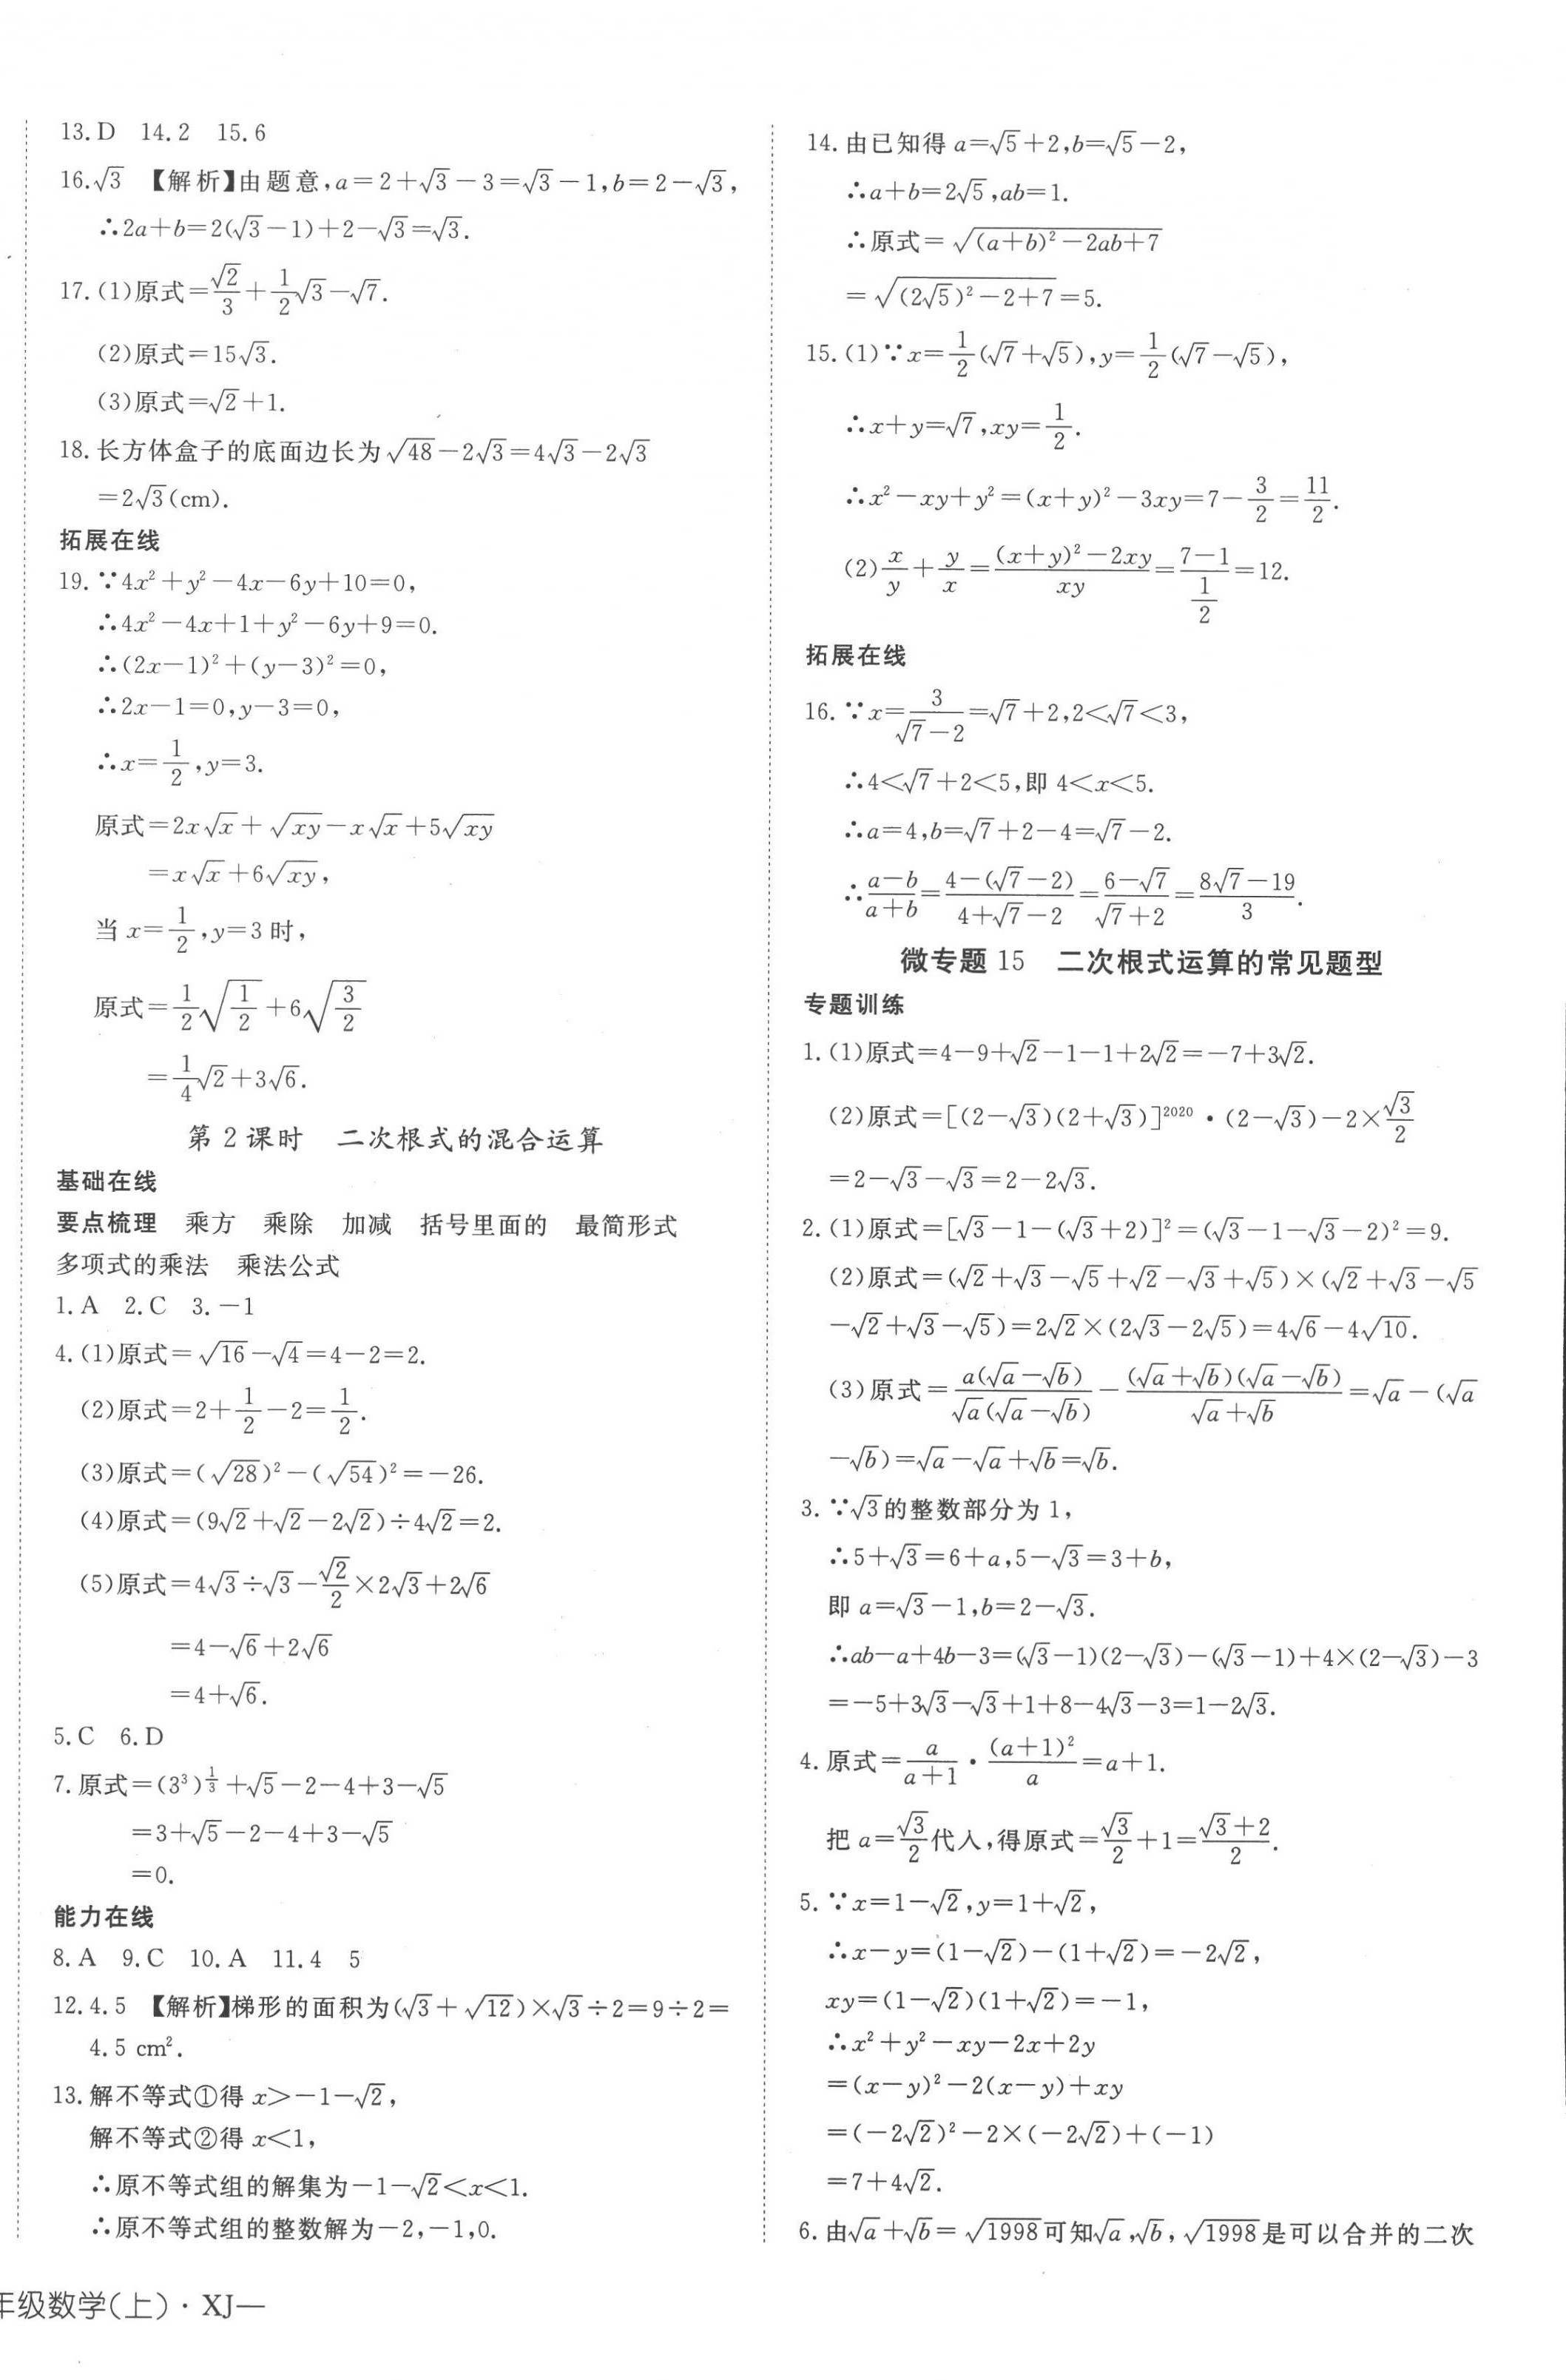 13.D 14.2 15.6
16.√3 【解析】由题意,a=2+√3-3=√3-1,b=2-√3,
∴2a+b=2(√3-1)+2-√3=√3.
17.(1)原式=√2/3+1/2√3-√7.
(2)原式=15√3.
(3)原式=√2+1.
18.长方体盒子的底面边长为√48-2√3=4√3-2√3
=2√3(cm).
拓展在线
19.∵4x²+y²-4x-6y+10=0,
∴4x²-4x+1+y²-6y+9=0.
∴(2x-1)²+(y-3)²=0,
∴2x-1=0,y-3=0,
∴x=1/2,y=3.
原式=2x√x+√(xy)-x√x+5√(xy)
=x√x+6√(xy),
当x=1/2,y=3时,
原式=1/2√(1/2)+6√(3/2)
=1/4√2+3√6.
第2课时 二次根式的混合运算
基础在线
要点梳理 乘方 乘除 加减 括号里面的 最简形式
多项式的乘法 乘法公式
1.A 2.C 3.-1
4.(1)原式=√16-√4=4-2=2.
(2)原式=2+1/2-2=1/2.
(3)原式=(√28)²-(√54)²=-26.
(4)原式=(9√2+√2-2√2)÷4√2=2.
(5)原式=4√3÷√3-√2/2×2√3+2√6
=4-√6+2√6
=4+√6.
5.C 6.D
7.原式=(3³)^(1/3)+√5-2-4+3-√5
=3+√5-2-4+3-√5
=0.
能力在线
8.A 9.C 10.A 11.4 5
12.4.5 【解析】梯形的面积为(√3+√12)×√3÷2=9÷2=
4.5 cm².
13.解不等式①得x>-1-√2,
解不等式②得x<1,
∴原不等式组的解集为-1-√2<x<1.
∴原不等式组的整数解为-2,-1,0.
年级数学(上)·XJ—
14.由已知得a=√5+2,b=√5-2,
∴a+b=2√5,ab=1.
∴原式=√((a+b)²-2ab+7)
=√((2√5)²-2+7)=5.
15.(1)∵x=1/2(√7+√5),y=1/2(√7-√5),
∴x+y=√7,xy=1/2.
∴x²-xy+y²=(x+y)²-3xy=7-3/2=11/2.
(2)x/y+y/x=((x+y)²-2xy)/xy=(7-1)/(1/2)=12.
拓展在线
16.∵x=3/(√7-2)=√7+2,2<√7<3,
∴4<√7+2<5,即4<x<5.
∴a=4,b=√7+2-4=√7-2.
∴(a-b)/(a+b)=(4-(√7-2))/(4+√7-2)=(6-√7)/(√7+2)=(8√7-19)/3.
微专题15 二次根式运算的常见题型
专题训练
1.(1)原式=4-9+√2-1-1+2√2=-7+3√2.
(2)原式=[(2-√3)(2+√3)]²⁰²⁰·(2-√3)-2×√3/2
=2-√3-√3=2-2√3.
2.(1)原式=[√3-1-(√3+2)]²=(√3-1-√3-2)²=9.
(2)原式=(√2+√3-√5+√2-√3+√5)×(√2+√3-√5
-√2+√3-√5)=2√2×(2√3-2√5)=4√6-4√10.
(3)原式=a(√a-√b)/(√a(√a-√b))-(√a+√b)(√a-√b)/(√a+√b)=√a-(√a
-√b)=√a-√a+√b=√b.
3.∵√3的整数部分为1,
∴5+√3=6+a,5-√3=3+b,
即a=√3-1,b=2-√3.
∴ab-a+4b-3=(√3-1)(2-√3)-(√3-1)+4×(2-√3)-3
=-5+3√3-√3+1+8-4√3-3=1-2√3.
4.原式=a/(a+1)·(a+1)²/a=a+1.
把a=√3/2代入,得原式=√3/2+1=(√3+2)/2.
5.∵x=1-√2,y=1+√2,
∴x-y=(1-√2)-(1+√2)=-2√2,
xy=(1-√2)(1+√2)=-1,
∴x²+y²-xy-2x+2y
=(x-y)²-2(x-y)+xy
=(-2√2)²-2×(-2√2)+(-1)
=7+4√2.
6.由√a+√b=√1998可知√a,√b,√1998是可以合并的二次